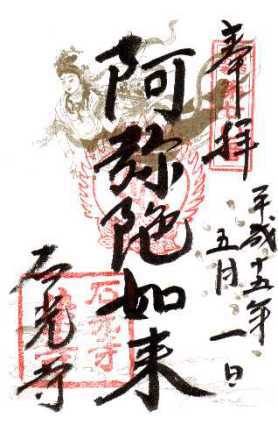 奉拝
平成十五年
五月一日
阿弥陀如来
石光寺